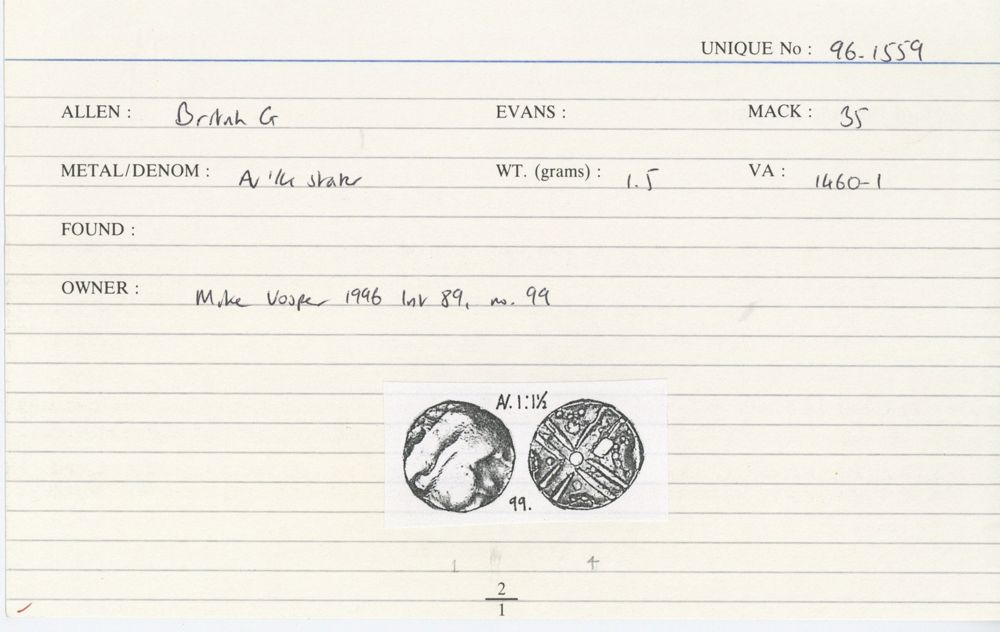 UNIQUE No : 96-1559
ALLEN : British G EVANS : MACK : 35
METAL/DENOM : AV 1/4 stater WT. (grams) : 1.5 VA : 1460-1
FOUND :
OWNER : Mike Vosper 1996 list 89, no. 99
AV. 1:1½
99.
1 4
2
1